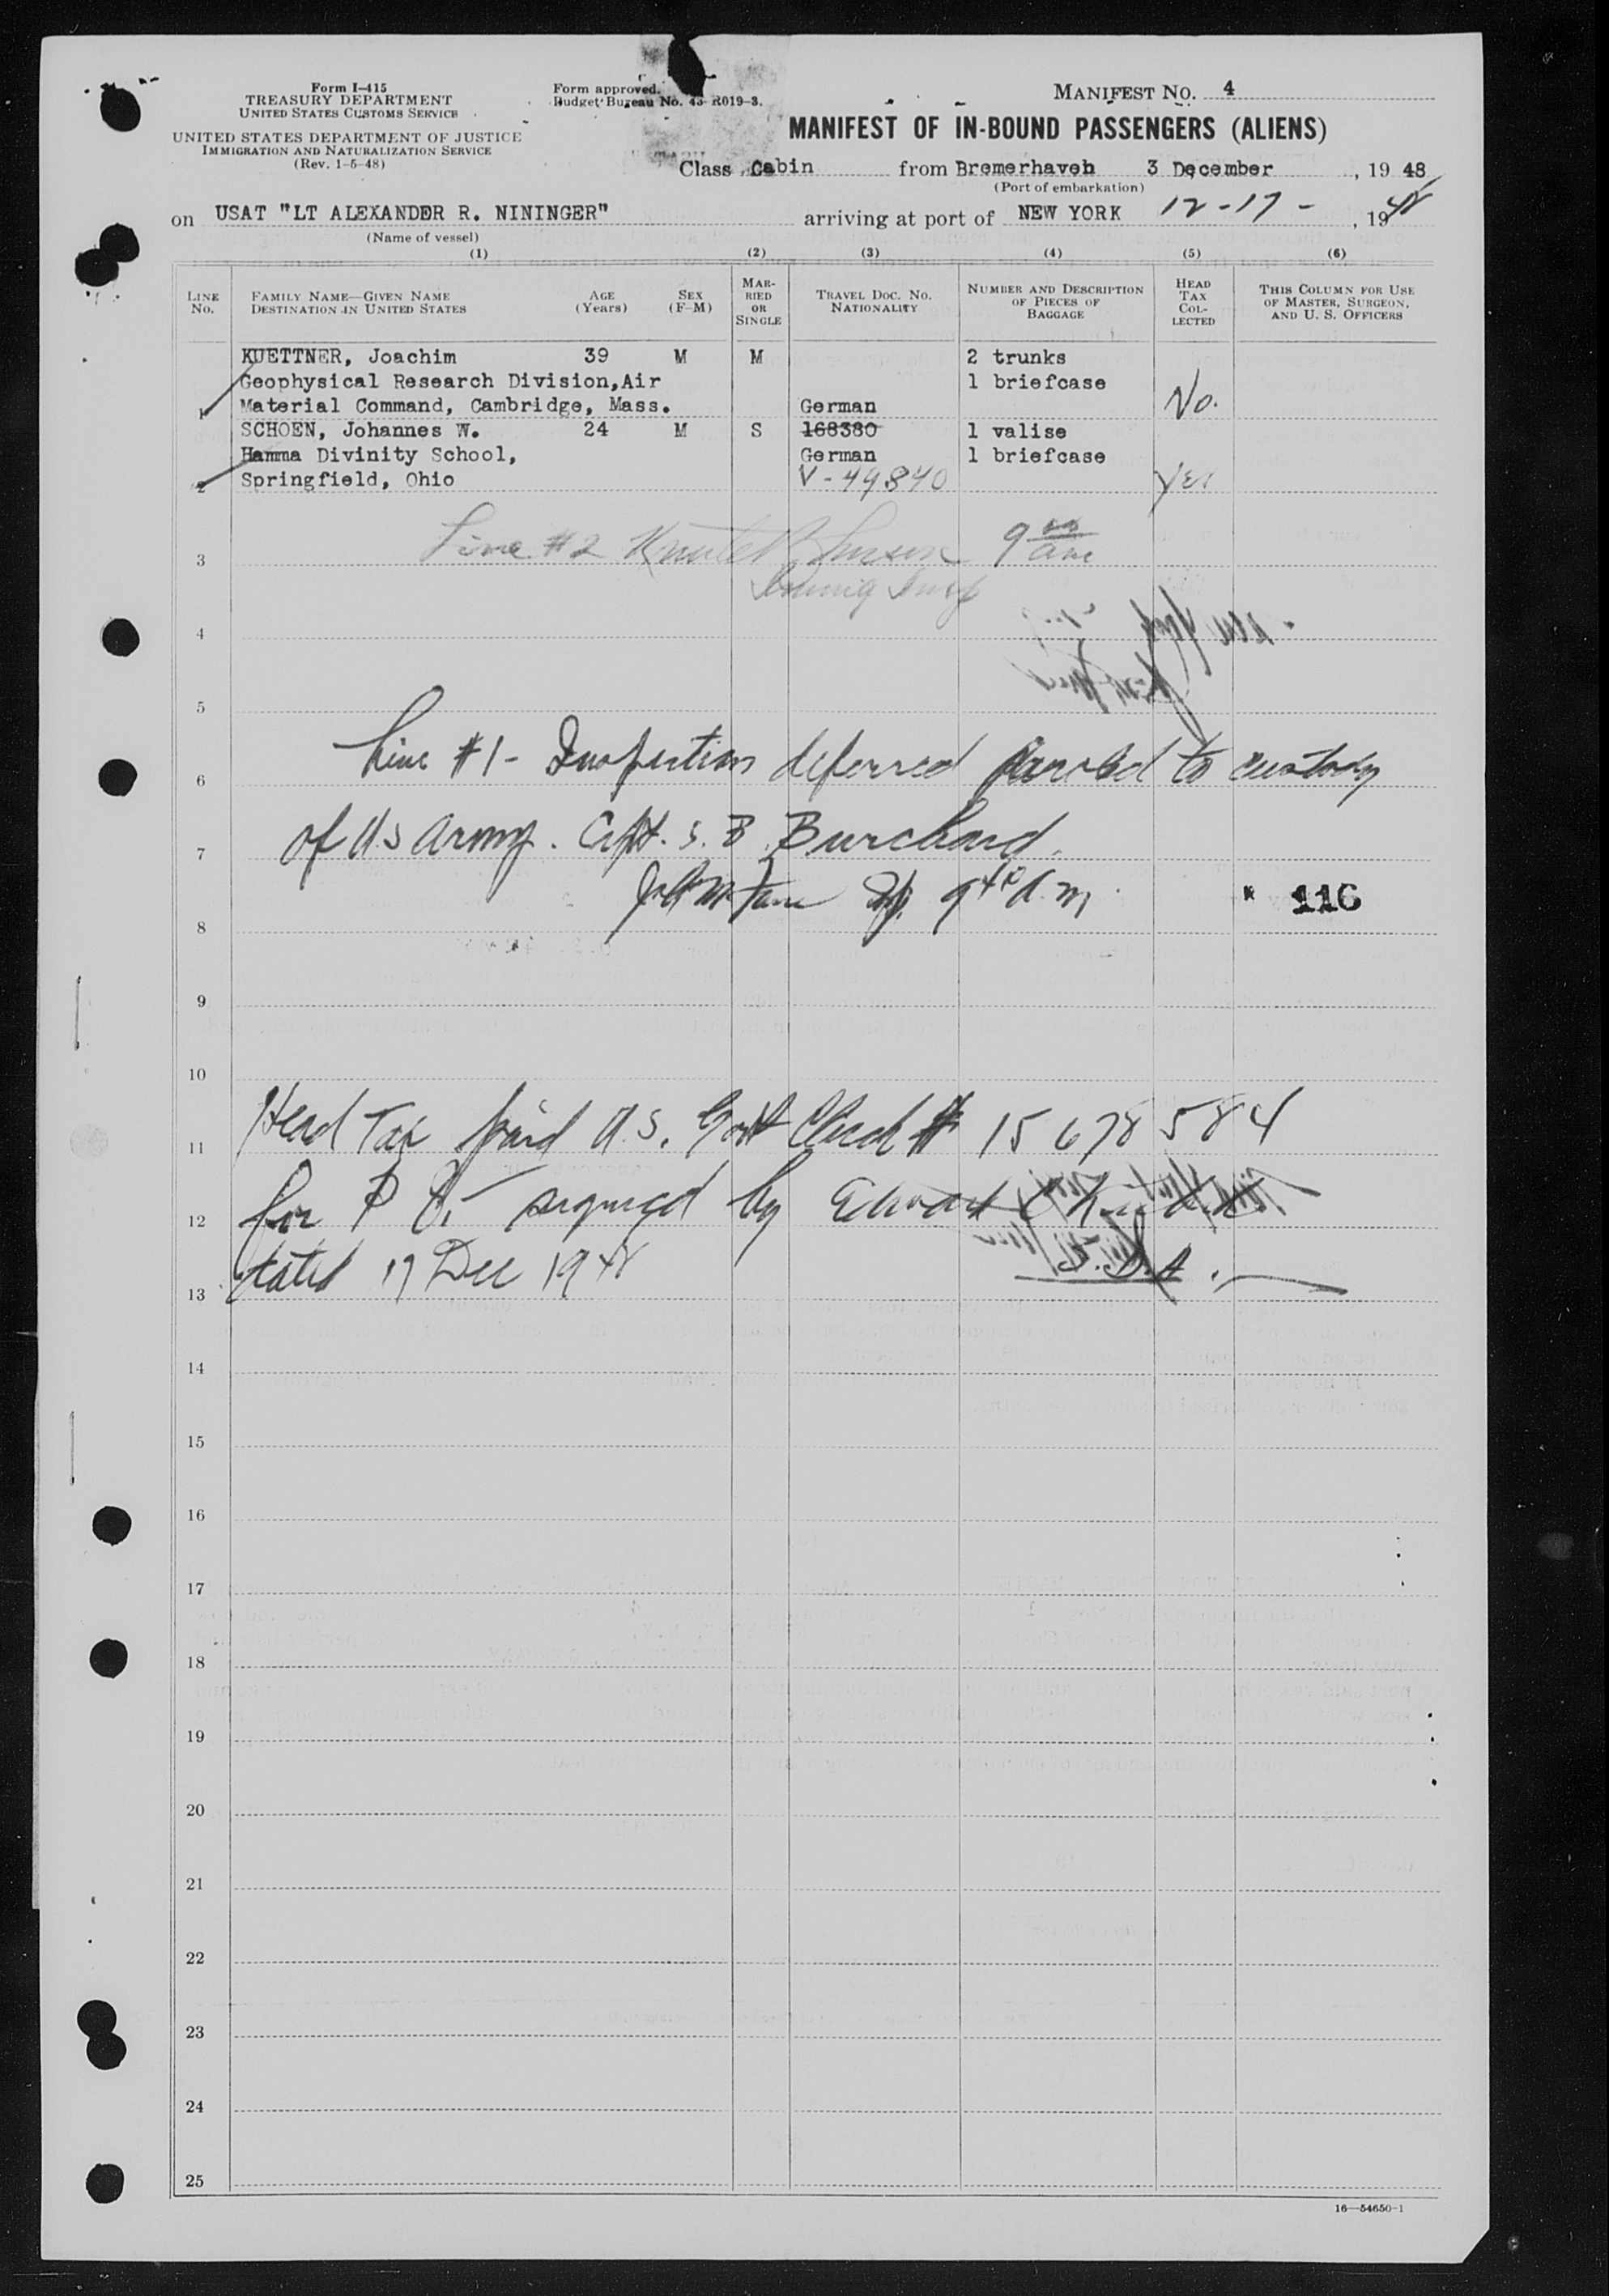 Form I-415
TREASURY DEPARTMENT
UNITED STATES CUSTOMS SERVICE
UNITED STATES DEPARTMENT OF JUSTICE
IMMIGRATION AND NATURALIZATION SERVICE
(Rev. 1-5-48)
Form approved.
Budget Bureau No. 43-R019-3.
MANIFEST NO. 4
MANIFEST OF IN-BOUND PASSENGERS (ALIENS)
Class Cabin from Bremerhaven 3 December, 19 48
(Port of embarkation)
on USAT "LT ALEXANDER R. NININGER" arriving at port of NEW YORK 12-17-, 1948
(Name of vessel)
(1) (2) (3) (4) (5) (6)
LINE No. FAMILY NAME—GIVEN NAME DESTINATION IN UNITED STATES AGE (Years) SEX (F-M) MARRIED OR SINGLE TRAVEL DOC. NO. NATIONALITY NUMBER AND DESCRIPTION OF PIECES OF BAGGAGE HEAD TAX COLLECTED THIS COLUMN FOR USE OF MASTER, SURGEON, AND U. S. OFFICERS
KUETTNER, Joachim 39 M M 2 trunks
Geophysical Research Division,Air 1 briefcase
1 Material Command, Cambridge, Mass. German No.
SCHOEN, Johannes W. 24 M S 168380 1 valise
Hamma Divinity School, German 1 briefcase
2 Springfield, Ohio V-49840 Yes
Line #2 9 00 am
3
Immig Insp
4
5
Line #1 - Inspection deferred paroled to custody
6
of U.S Army. Capt. S. B. Burchard.
7
9 40 A.m.
116
8
9
10
Head Tax paid U.S. Govt Check # 15 678 584
11
for signed by Edward
12
dated 17 Dec 1948
13
14
15
16
17
18
19
20
21
22
23
24
25
16—54650-1